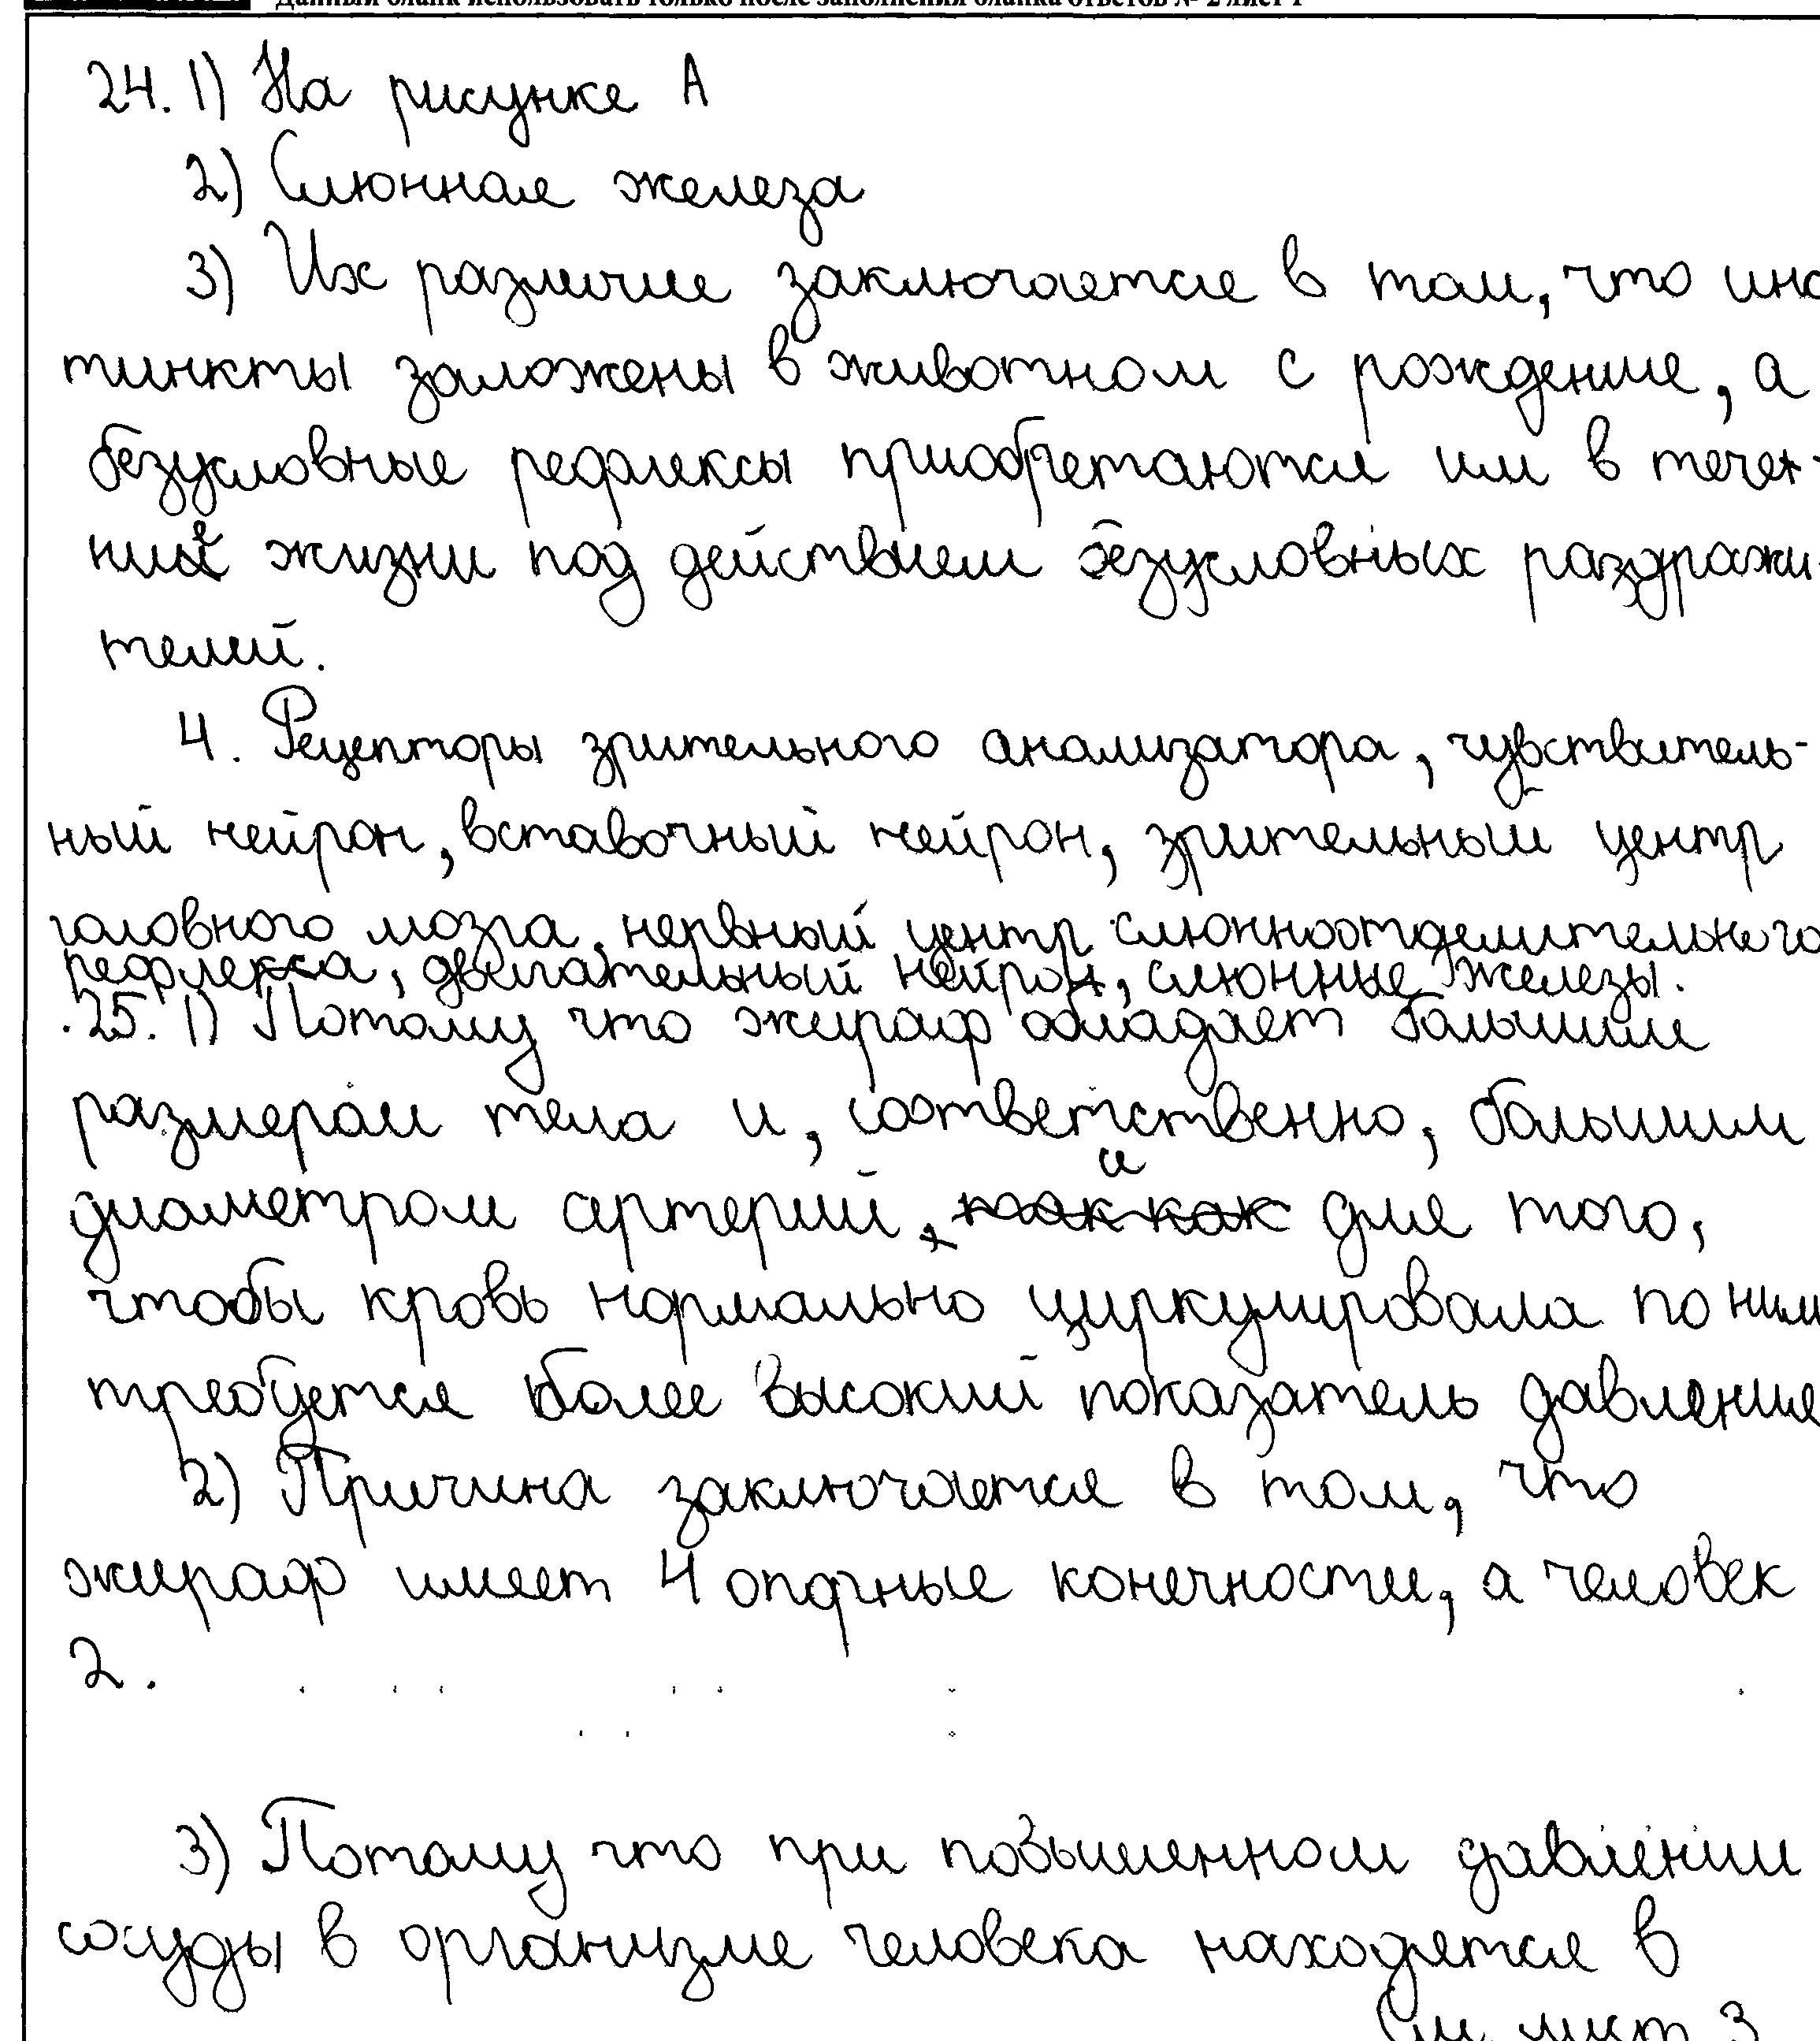 Данный бланк использовать только после заполнения бланка ответов № 2 лист 1
24. 1) На рисунке А
2) Слюнная железа
3) Их различие заключается в том, что инс
тинкты заложены в животном с рождение, а
безусловные рефлексы приобретаются им в течен-
ние жизни под действием безусловных раздражи-
телей.
4. Рецепторы зрительного анализатора, чувствитель-
ный нейрон, вставочный нейрон, зрительный центр
головного мозга, нервный центр слюнноотделительного
рефлекса, двигательный нейрон, слюнные железы.
25. 1) Потому что жираф обладает большим
размером тела и, соответственно, большим
диаметром артерий, и для того,
чтобы кровь нормально циркулировала по ним
требуется более высокий показатель давление
2) Причина заключается в том, что
жираф имеет 4 опорные конечности, а человек
2.
3) Потому что при повышенном давлении
сосуды в организме человека находятся в
См лист 3